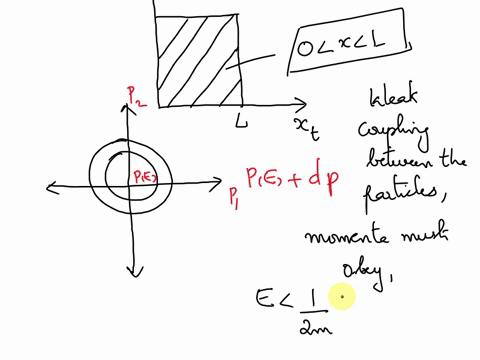 0 < x < L
L
x_t
P_2
P(E)
P_1
P(E) + dp
Weak
coupling
between the
particles,
momenta must
obey,
E < 1/2m